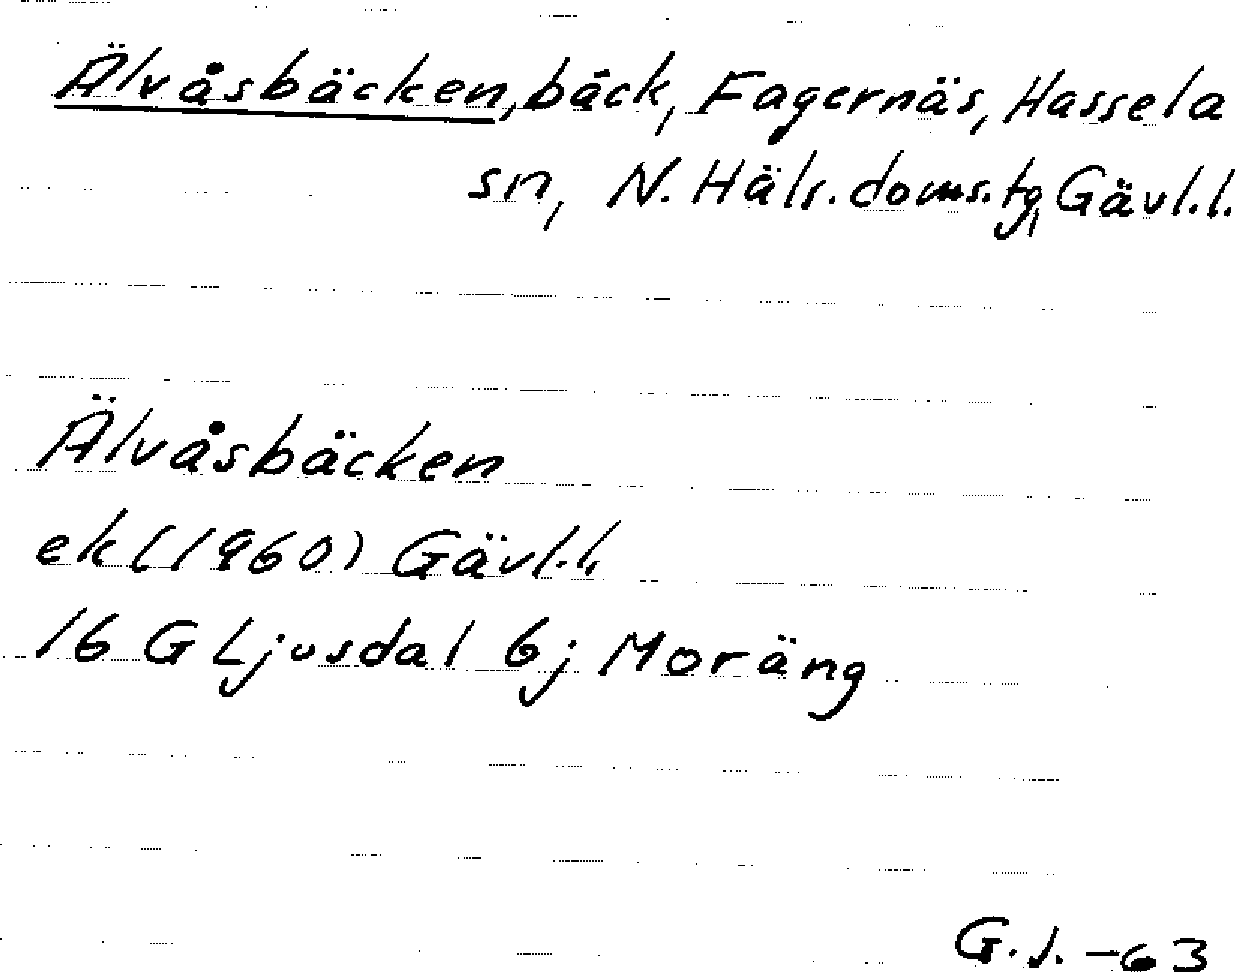 Älvåsbäcken, bäck, Fagernäs, Hassela
sn, N. Häls. doms. tg, Gävl.l.
Älvåsbäcken
ek (1960) Gävl.l.
16 G Ljusdal 6j Moräng
G.J. -63